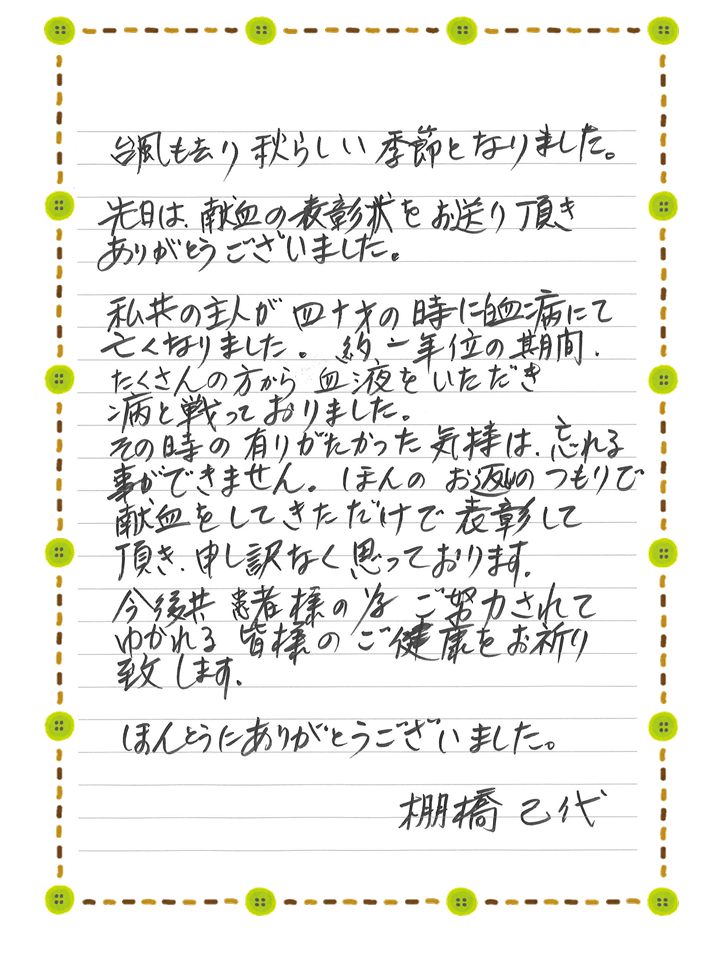 台風も去り 秋らしい 季節となりました。
先日は、献血の表彰状をお送り頂き
ありがとうございました。
私共の主人が 四十才の時に白血病にて
亡くなりました。 約一年位の期間、
たくさんの方から 血液をいただき
病と戦っておりました。
その時の有りがたかった気持は、忘れる
事ができません。ほんの お返しのつもりで
献血をしてきただけで表彰して
頂き、申し訳なく思っております。
今後共 患者様の為 ご努力されて
ゆかれる 皆様のご健康をお祈り
致します。
ほんとうにありがとうございました。
棚橋 己代